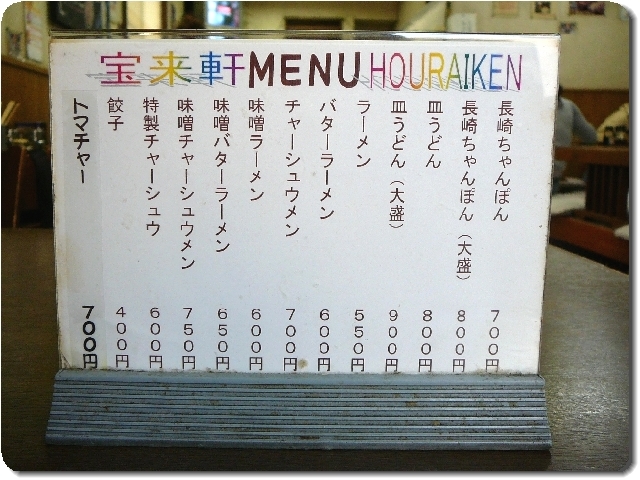 宝来軒MENU HOURAIKEN
長崎ちゃんぽん 700円
長崎ちゃんぽん（大盛） 800円
皿うどん 800円
皿うどん（大盛） 900円
ラーメン 550円
バターラーメン 600円
チャーシュウメン 700円
味噌ラーメン 600円
味噌バターラーメン 650円
味噌チャーシュウメン 750円
特製チャーシュウ 600円
餃子 400円
トマチャー 700円